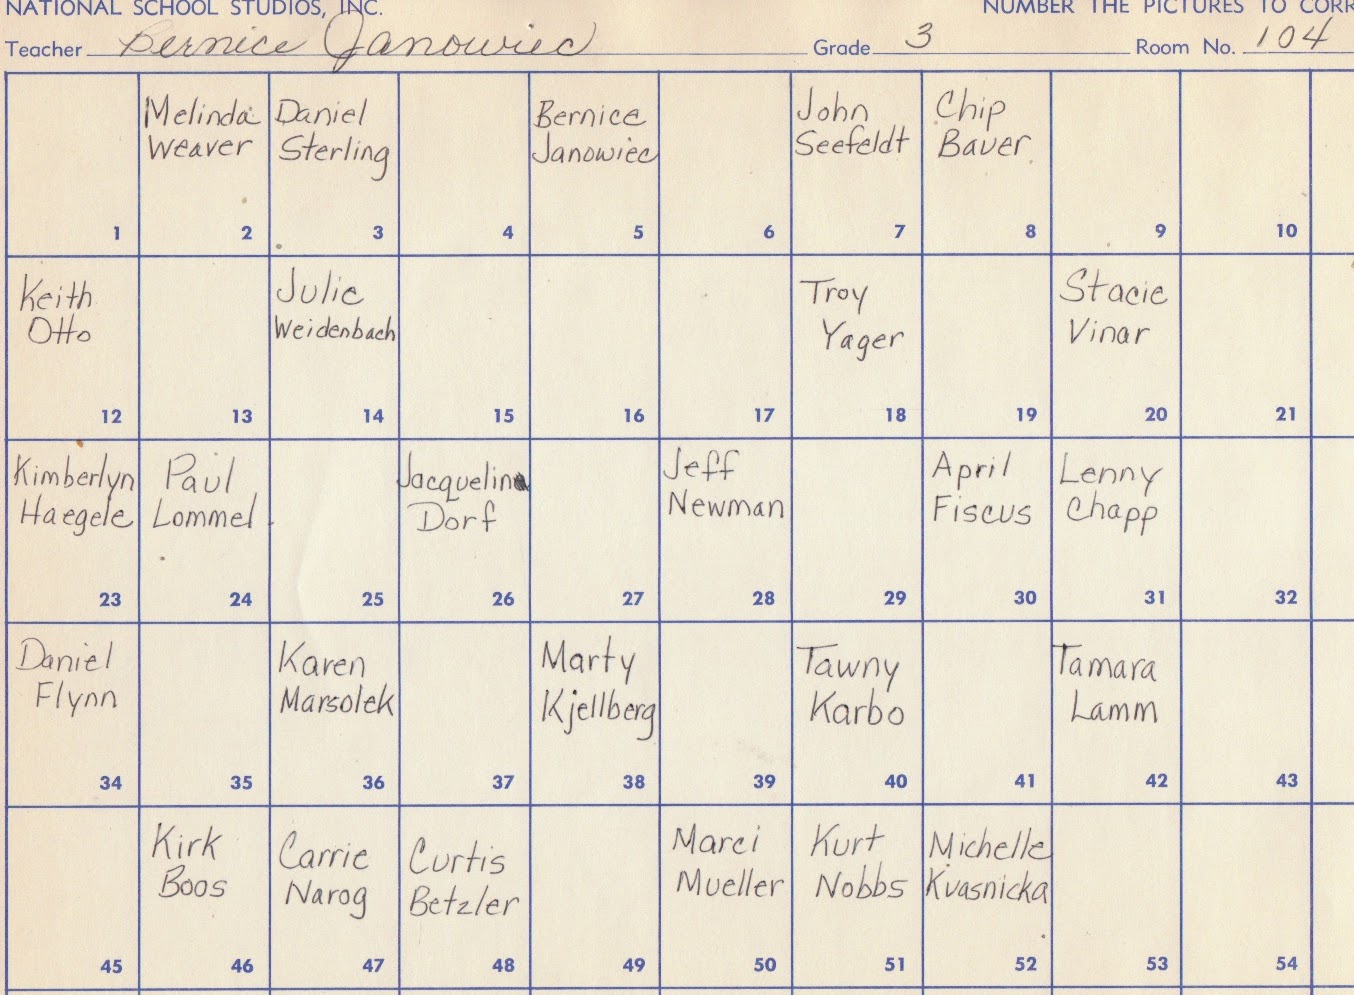 NATIONAL SCHOOL STUDIOS, INC. NUMBER THE PICTURES TO CORR
Teacher Bernice Janowiec Grade 3 Room No. 104
Melinda Daniel Bernice John Chip
Weaver Sterling Janowiec Seefeldt Bauer
1 2 3 4 5 6 7 8 9 10
Keith Julie Troy Stacie
Otto Weidenbach Yager Vinar
12 13 14 15 16 17 18 19 20 21
Kimberlyn Paul Jacquelina Jeff April Lenny
Haegele Lommel Dorf Newman Fiscus Chapp
23 24 25 26 27 28 29 30 31 32
Daniel Karen Marty Tawny Tamara
Flynn Marsolek Kjellberg Karbo Lamm
34 35 36 37 38 39 40 41 42 43
Kirk Carrie Curtis Marci Kurt Michelle
Boos Narog Betzler Mueller Nobbs Kvasnicka
45 46 47 48 49 50 51 52 53 54